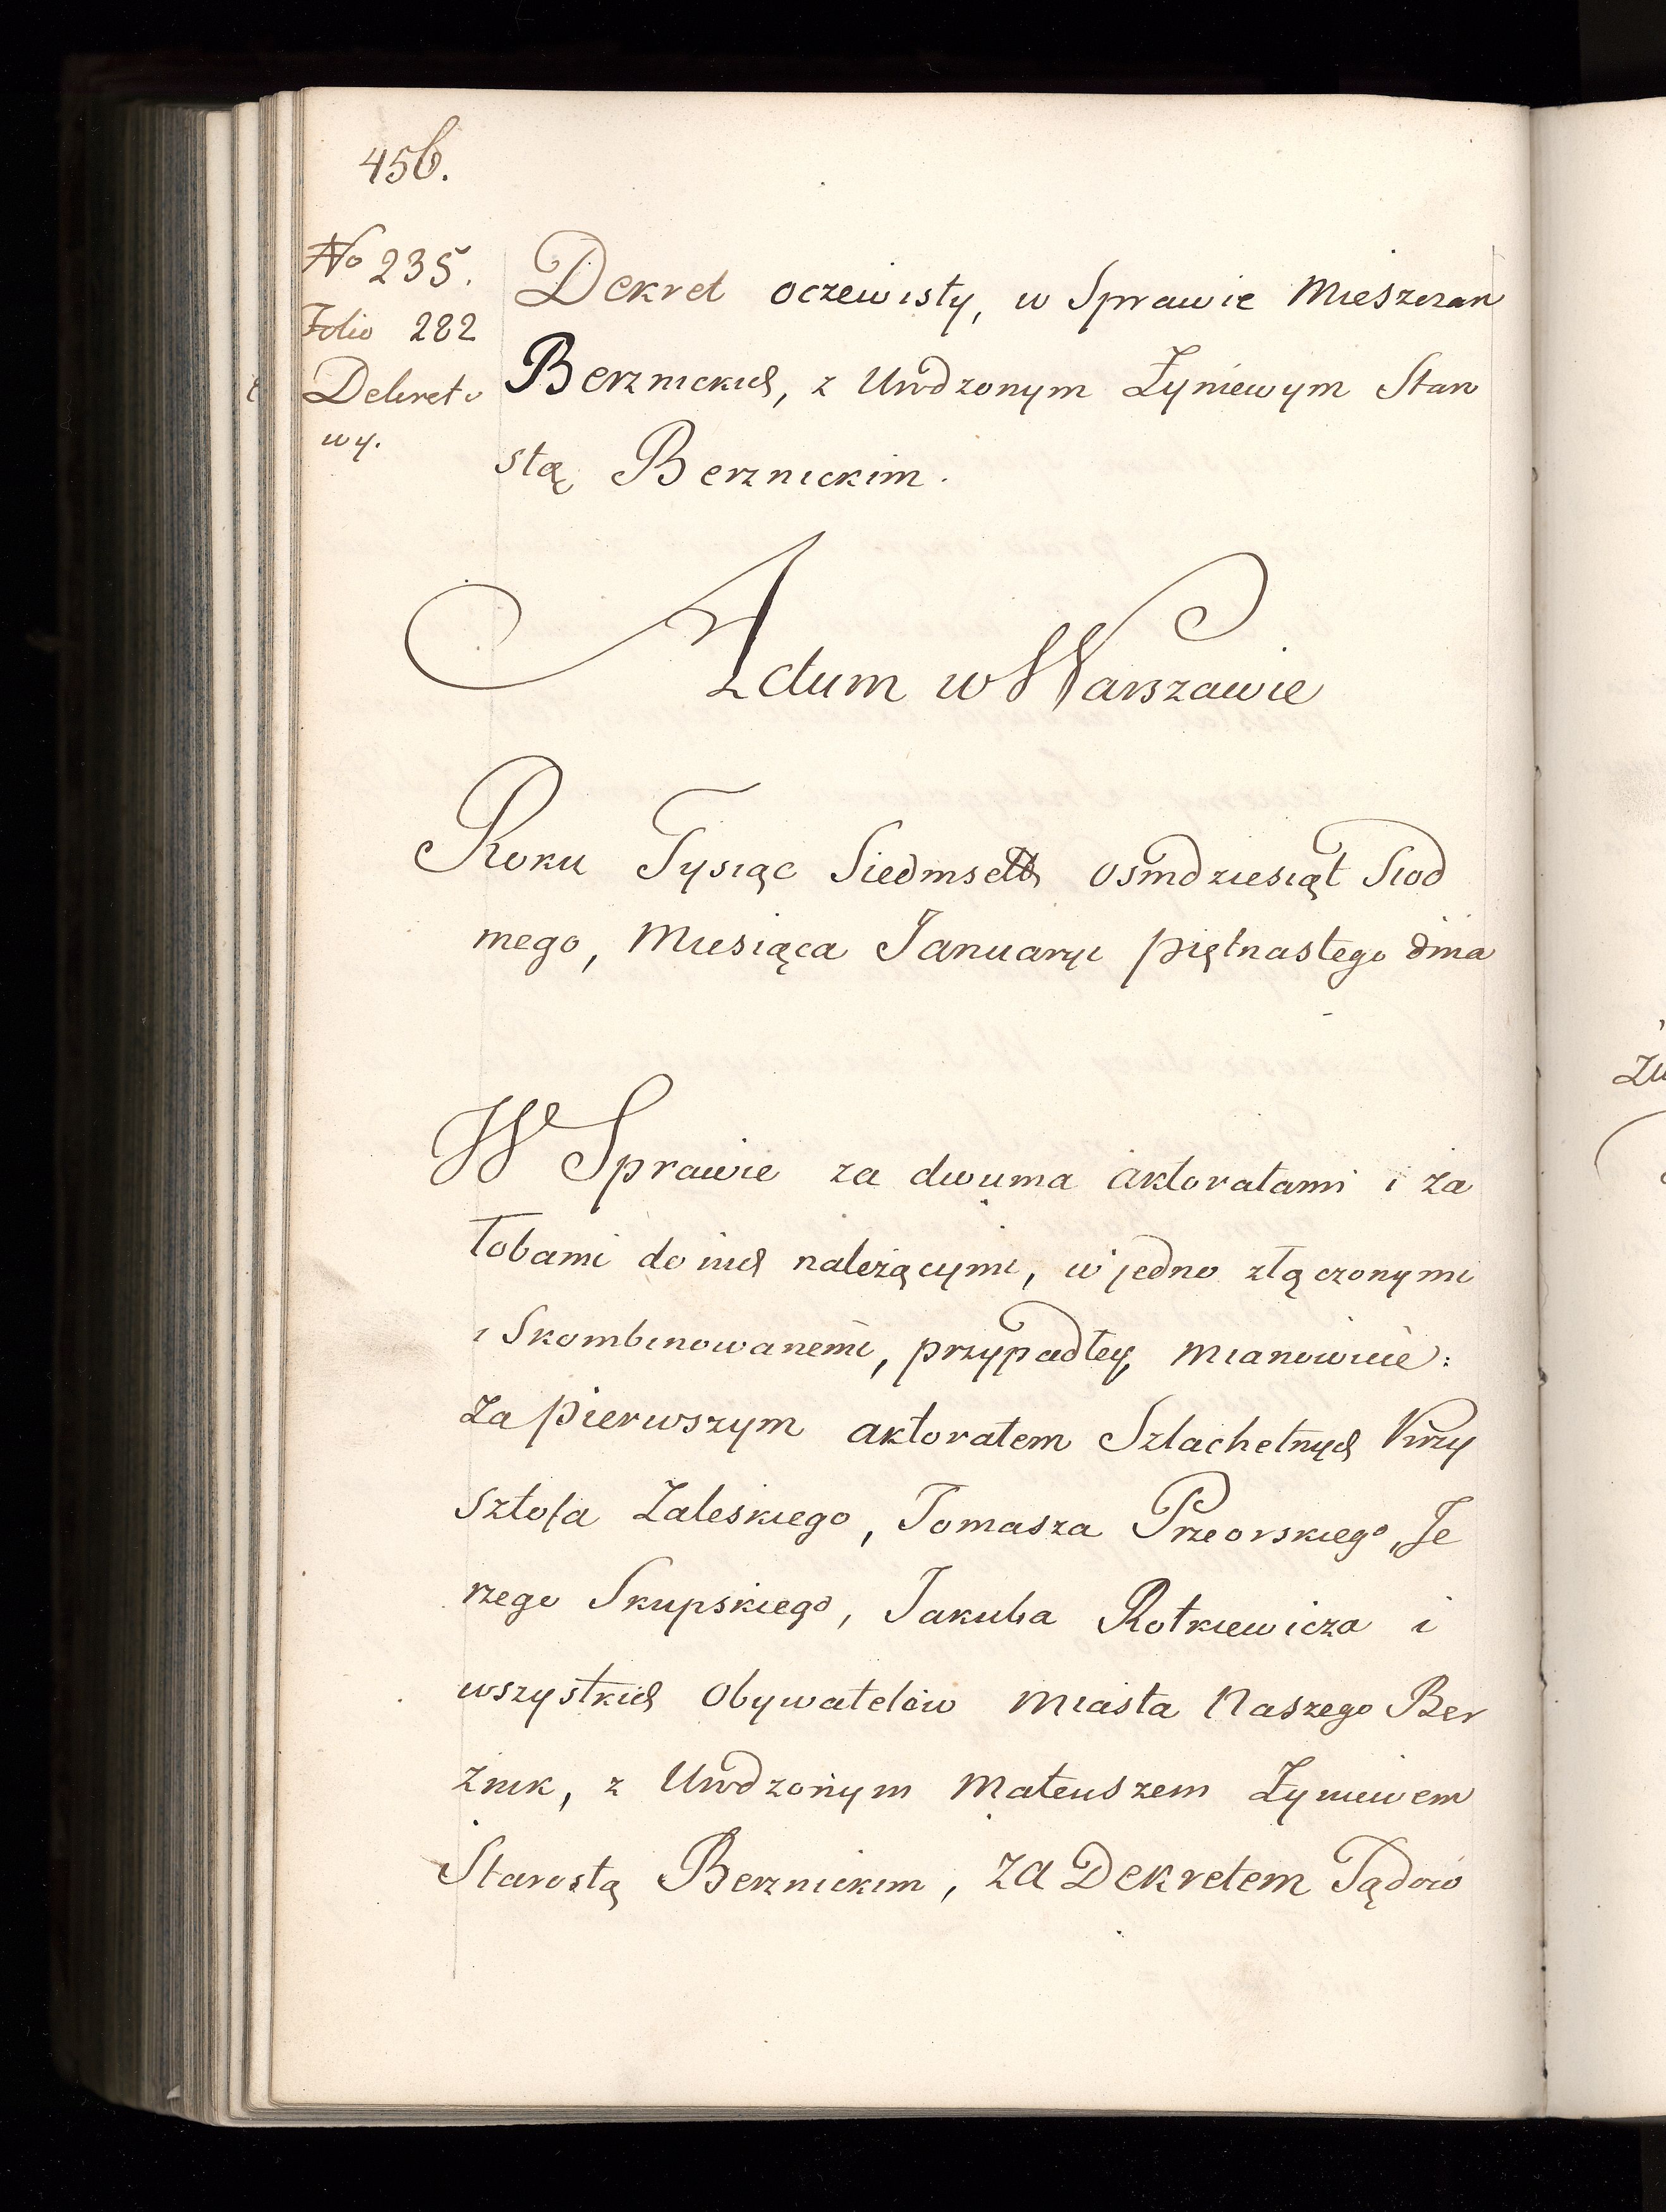 456.
No 235.
Folio 282
Dekreto
wy.
Dekret oczewisty, w Sprawie Mieszczan
Berznickich, z Urodzonym Żyniewym Staro
stą Berznickim.
Actum w Warszawie
Roku Tysiąc Siedmset osmdziesiąt Siod
mego, Miesiąca January piętnastego dnia
W Sprawie za dwuma aktoratami i ża
łobami do nich należącymi, w jedno złączonymi
i Skombinowanemi, przypadłey, mianowicie:
Za pierwszym aktoratem Szlachetnych Krzy
sztofa Zaleskiego, Tomasza Przeorskiego, Je
rzego Skupskiego, Jakuba Rotkiewicza i
wszystkich Obywatelów Miasta Naszego Ber
żnik, z Urodzonym Mateuszem Żyniewem
Starostą Berznickim, za Dekretem Sądów